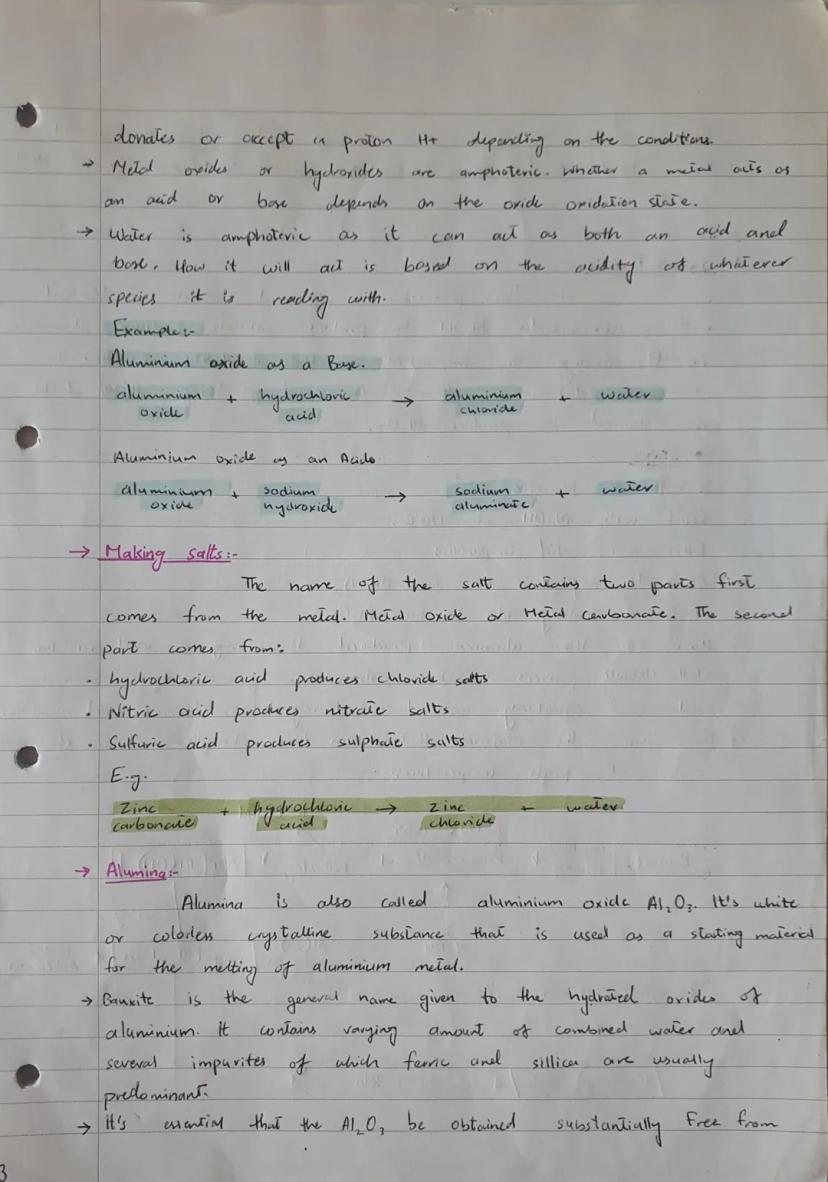 donates or accept a proton H+ depending on the conditions.
→ Metal oxides or hydroxides are amphoteric. Whether a metal acts as
an acid or base depends on the oxide oxidation state.
→ Water is amphoteric as it can act as both an acid and
base. How it will act is based on the acidity of whatever
species it is reading with.
Example:-
Aluminium oxide as a Base.
aluminium oxide + hydrochloric acid → aluminium chloride + water
Aluminium oxide as an Acido
aluminium oxide + sodium hydroxide → sodium aluminate + water
→ Making salts:-
The name of the salt contains two parts first
comes from the metal. Metal oxide or Metal Carbonate. The second
part comes from:
. hydrochloric acid produces chloride salts
. Nitric acid produces nitrate salts
. Sulfuric acid produces sulphate salts
E.g.
Zinc carbonate + hydrochloric acid → Zinc chloride + water
→ Alumina:-
Alumina is also called aluminium oxide Al₂O₃. It's white
or colorless crystalline substance that is used as a stating material
for the melting of aluminium metal.
→ Bauxite is the general name given to the hydrated oxides of
aluminium. it contains varying amount of combined water and
several impurites of which ferric and sillica are usually
predominant.
→ it's essential that the Al₂O₃ be obtained substantially free from
3